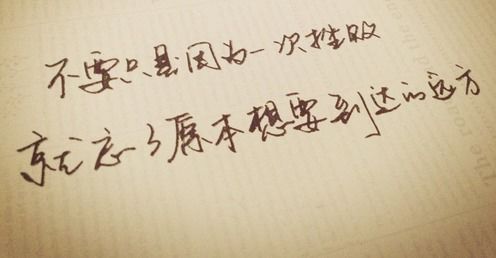 不要只是因为一次挫败
就忘了原本想要到达的远方